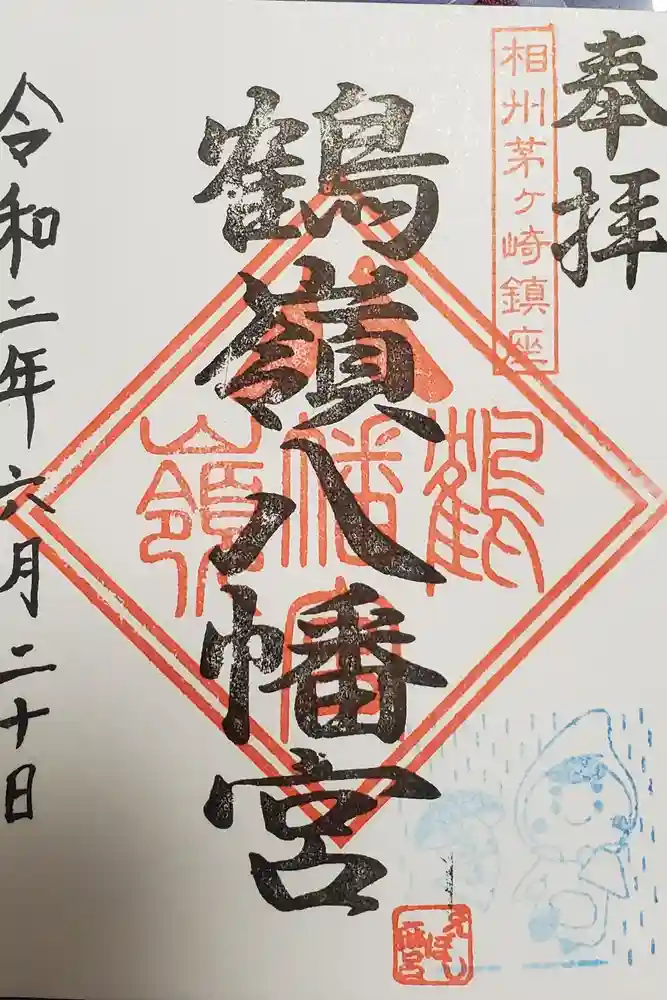 奉拝
相州茅ヶ崎鎮座
鶴嶺八幡宮
鶴
八幡宮
嶺
令和二年六月二十日
えぼし
麻呂